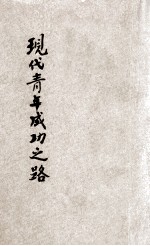 現代青年成功之路